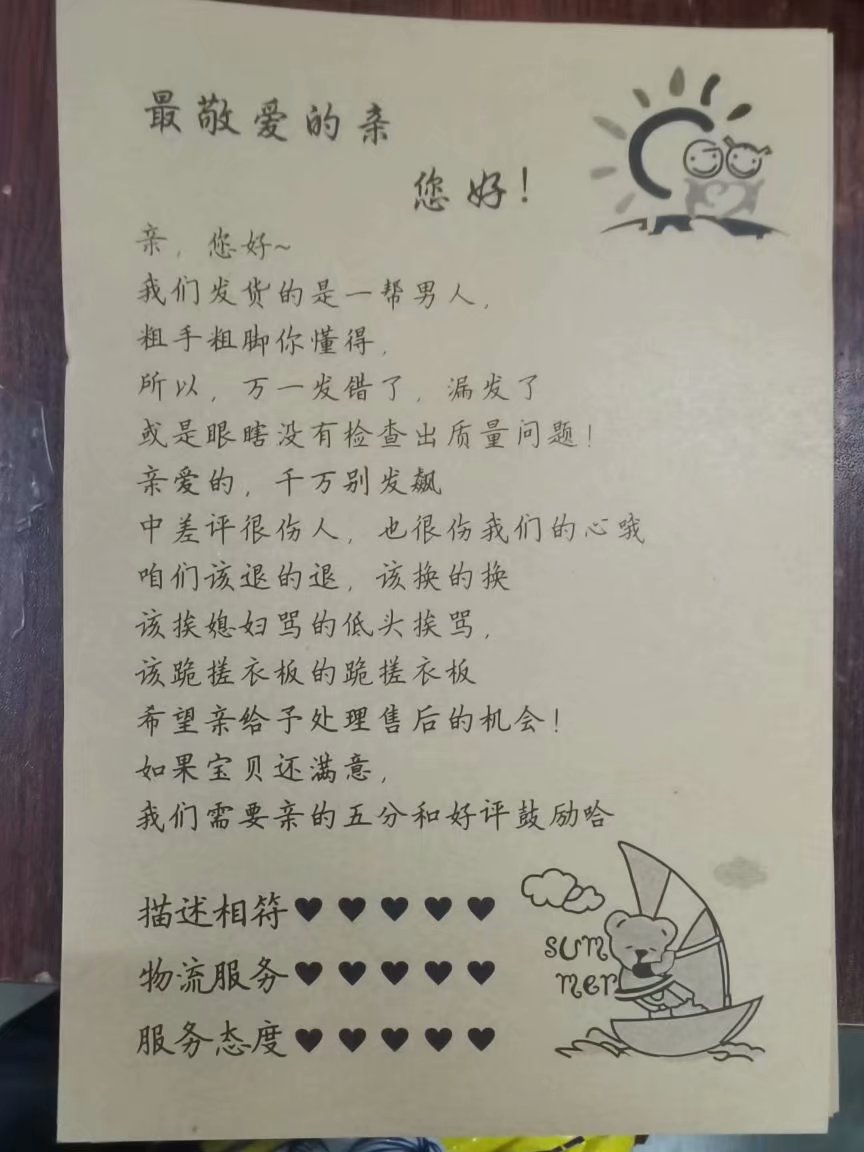 最敬爱的亲
您好!
亲，您好~
我们发货的是一帮男人，
粗手粗脚你懂得，
所以，万一发错了，漏发了
或是眼瞎没有检查出质量问题！
亲爱的，千万别发飙
中差评很伤人，也很伤我们的心哦
咱们该退的退，该换的换
该挨媳妇骂的低头挨骂，
该跪搓衣板的跪搓衣板
希望亲给予处理售后的机会！
如果宝贝还满意，
我们需要亲的五分和好评鼓励哈
描述相符♥♥♥♥♥
物流服务♥♥♥♥♥
服务态度♥♥♥♥♥
sum
mer